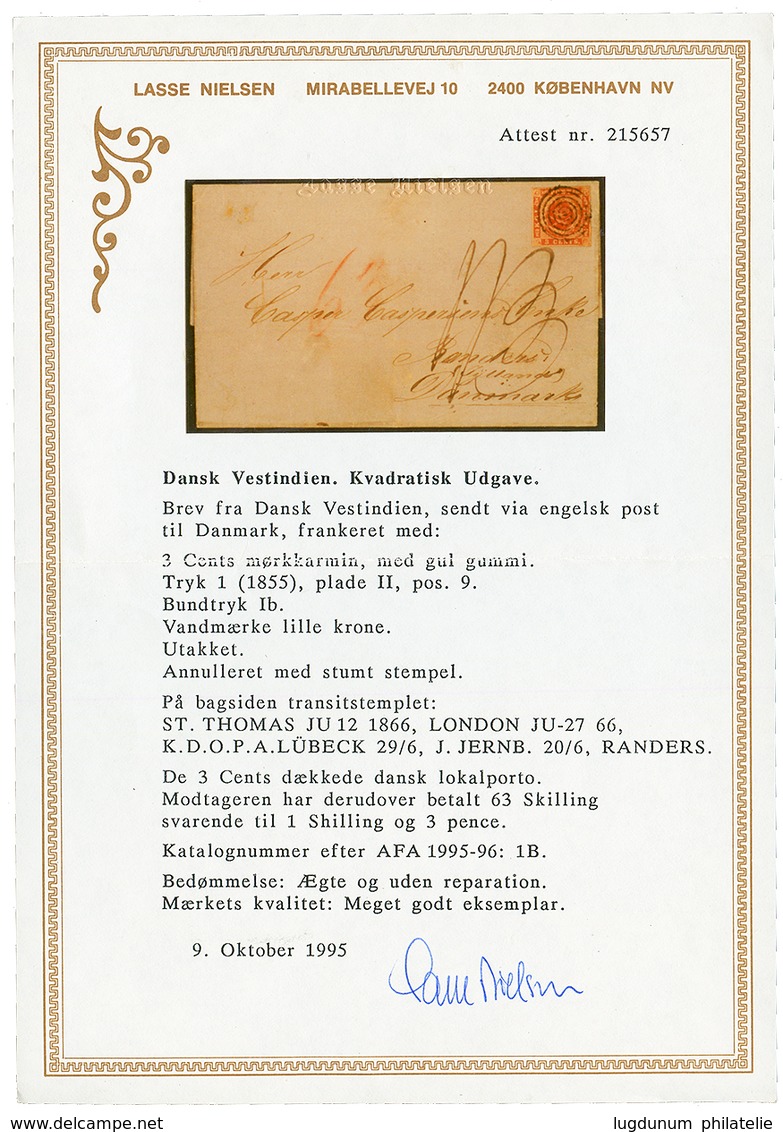 LASSE NIELSEN MIRABELLEVEJ 10 2400 KØBENHAVN NV
Attest nr. 215657
Lasse Nielsen
3 CENTS.
Herr
Casper Casperiens
Randers
Danmark
Dansk Vestindien. Kvadratisk Udgave.
Brev fra Dansk Vestindien, sendt via engelsk post
til Danmark, frankeret med:
3 Cents mørkkarmin, med gul gummi.
Tryk 1 (1855), plade II, pos. 9.
Bundtryk Ib.
Vandmærke lille krone.
Utakket.
Annulleret med stumt stempel.
På bagsiden transitstemplet:
ST. THOMAS JU 12 1866, LONDON JU-27 66,
K.D.O.P.A.LÜBECK 29/6, J. JERNB. 20/6, RANDERS.
De 3 Cents dækkede dansk lokalporto.
Modtageren har derudover betalt 63 Skilling
svarende til 1 Shilling og 3 pence.
Katalognummer efter AFA 1995-96: 1B.
Bedømmelse: Ægte og uden reparation.
Mærkets kvalitet: Meget godt eksemplar.
9. Oktober 1995
Lasse Nielsen
www.delcampe.net
lugdunum philatelie